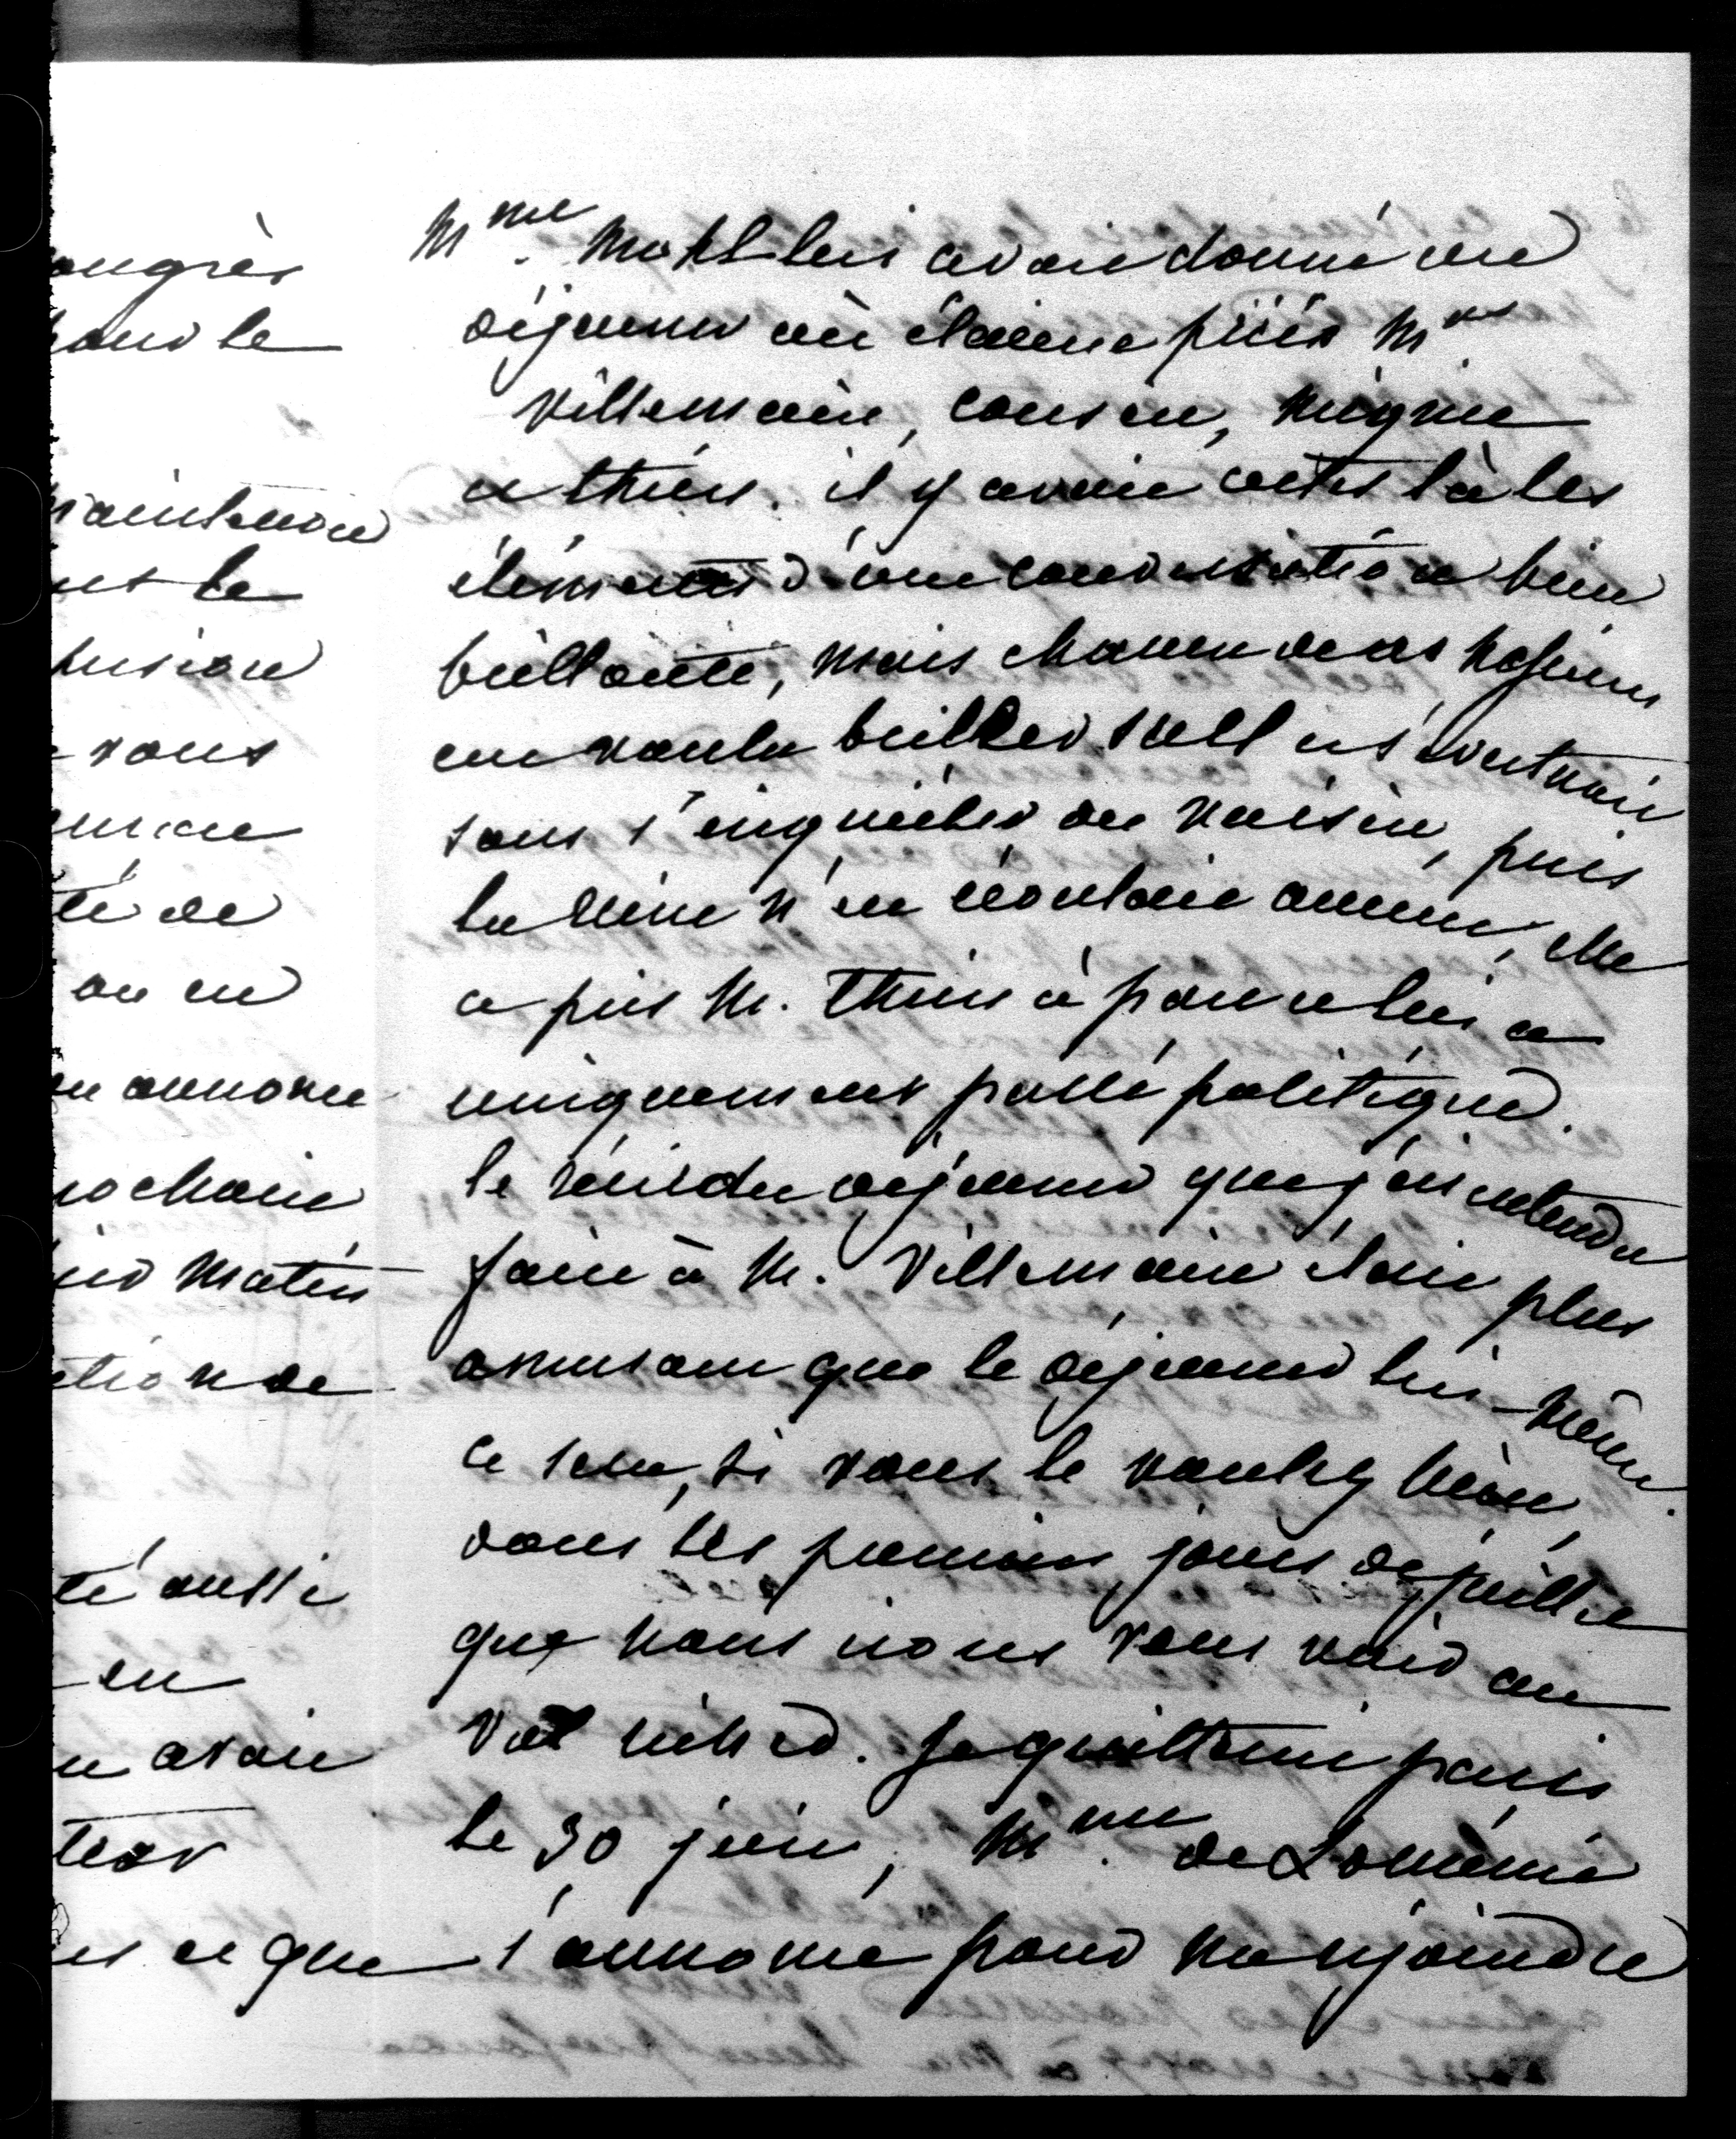 ongrès
pour le
maintenir
et le
fusion
vous
té de
on en
on annonce
prochaine
matin
tion de
té aussi
en
avait
et que
Mme. Mohl lui avait donné un
déjeuner où étaient priés Mrs
Villemain, Cousin, Mignet
et Thiers. il y avait certes là les
éléments d'une conversation bien
brillante, mais chacun de ces messieurs
eut voulu briller seul et s'évertuait
sans s'inquiéter du voisin, puis
la reine n'en écoutait aucun, elle
a pris M. Thiers à part et lui a
uniquement parlé politique.
le récit du déjeuner que j'ai entendu
faire à M. Villemain était plus
amusant que le déjeuner lui-même.
ce sera, si vous le voulez bien,
dans les premiers jours de juillet
que nous irons vous voir au
Val Richer. Je quitterai Paris
le 30 juin, Mme. de Loménie
s'annonce pour me rejoindre